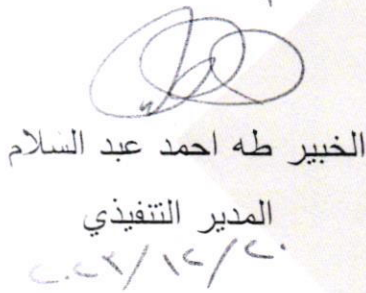 الخبير طه احمد عبد السلام
المدير التنفيذي
٢٠٢٣/١٢/٢٠